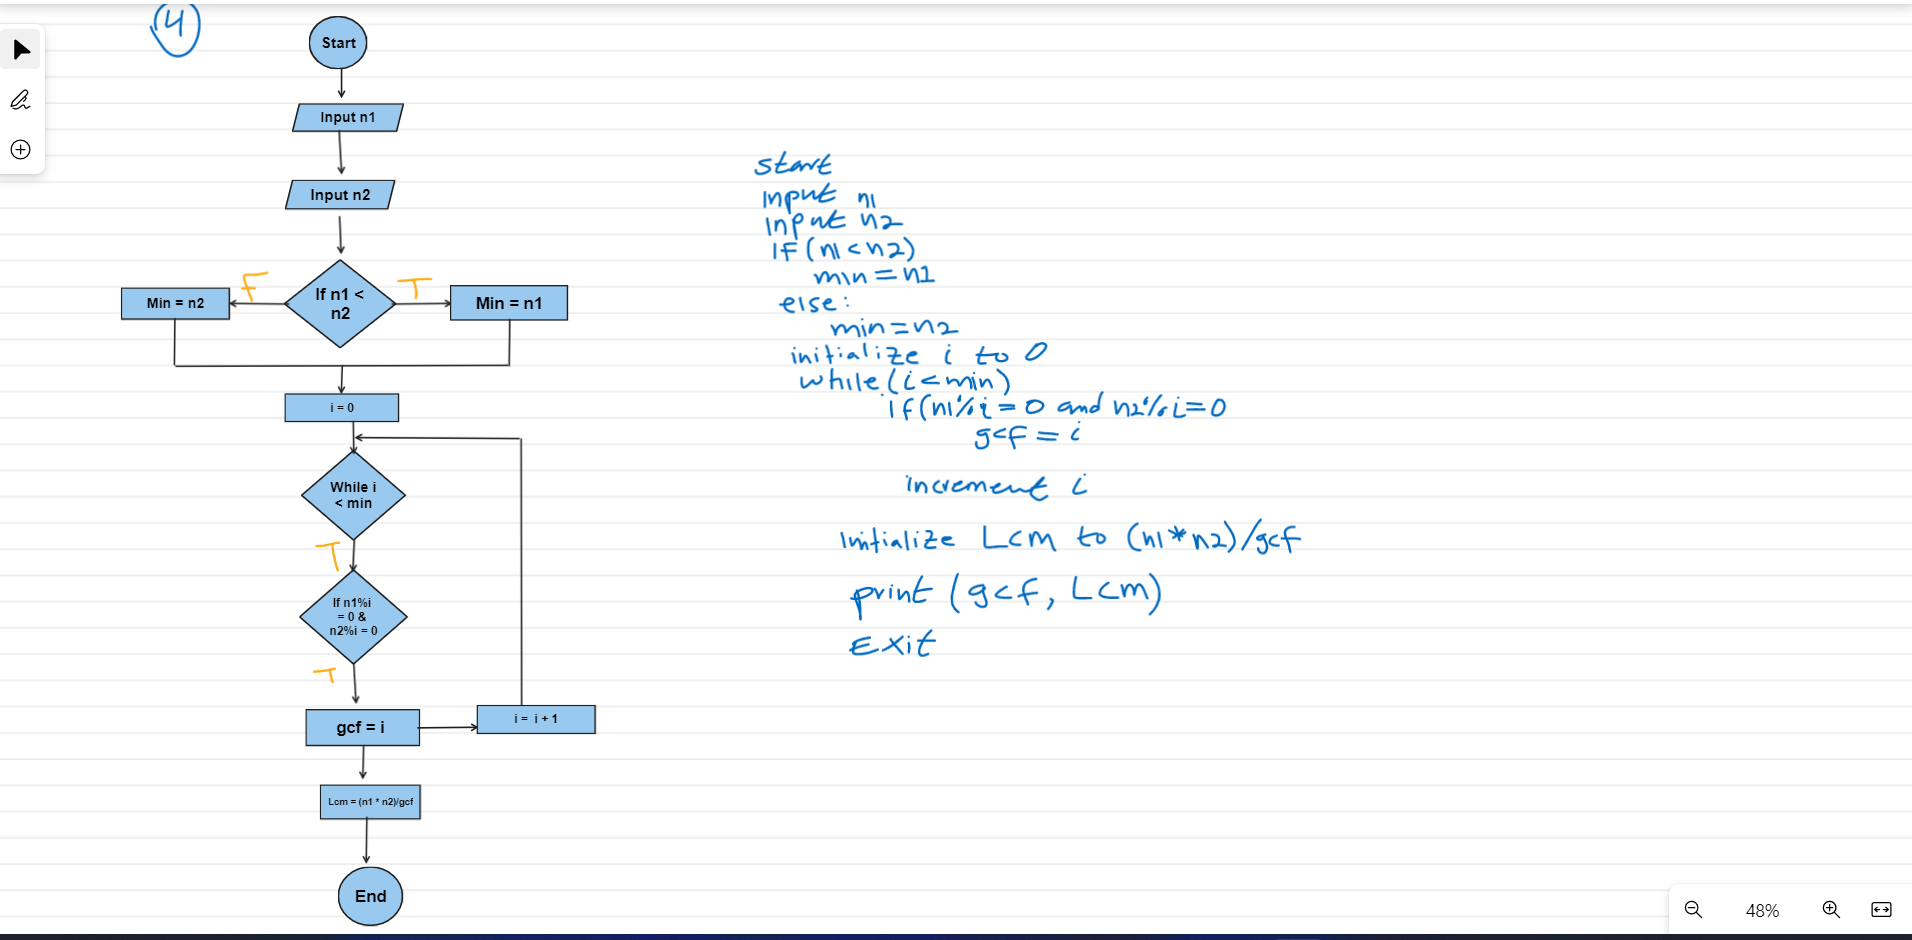 4
Start
Input n1
Input n2
If n1 <
n2
F
T
Min = n2
Min = n1
i = 0
While i
< min
T
If n1%i
= 0 &
n2%i = 0
T
gcf = i
i = i + 1
Lcm = (n1 * n2)/gcf
End
start
Input n1
Input n2
If (n1 < n2)
min = n1
else:
min = n2
initialize i to 0
while (i < min)
if (n1%i = 0 and n2%i = 0
gcf = i
increment i
Initialize Lcm to (n1 * n2)/gcf
print (gcf, Lcm)
Exit
48%